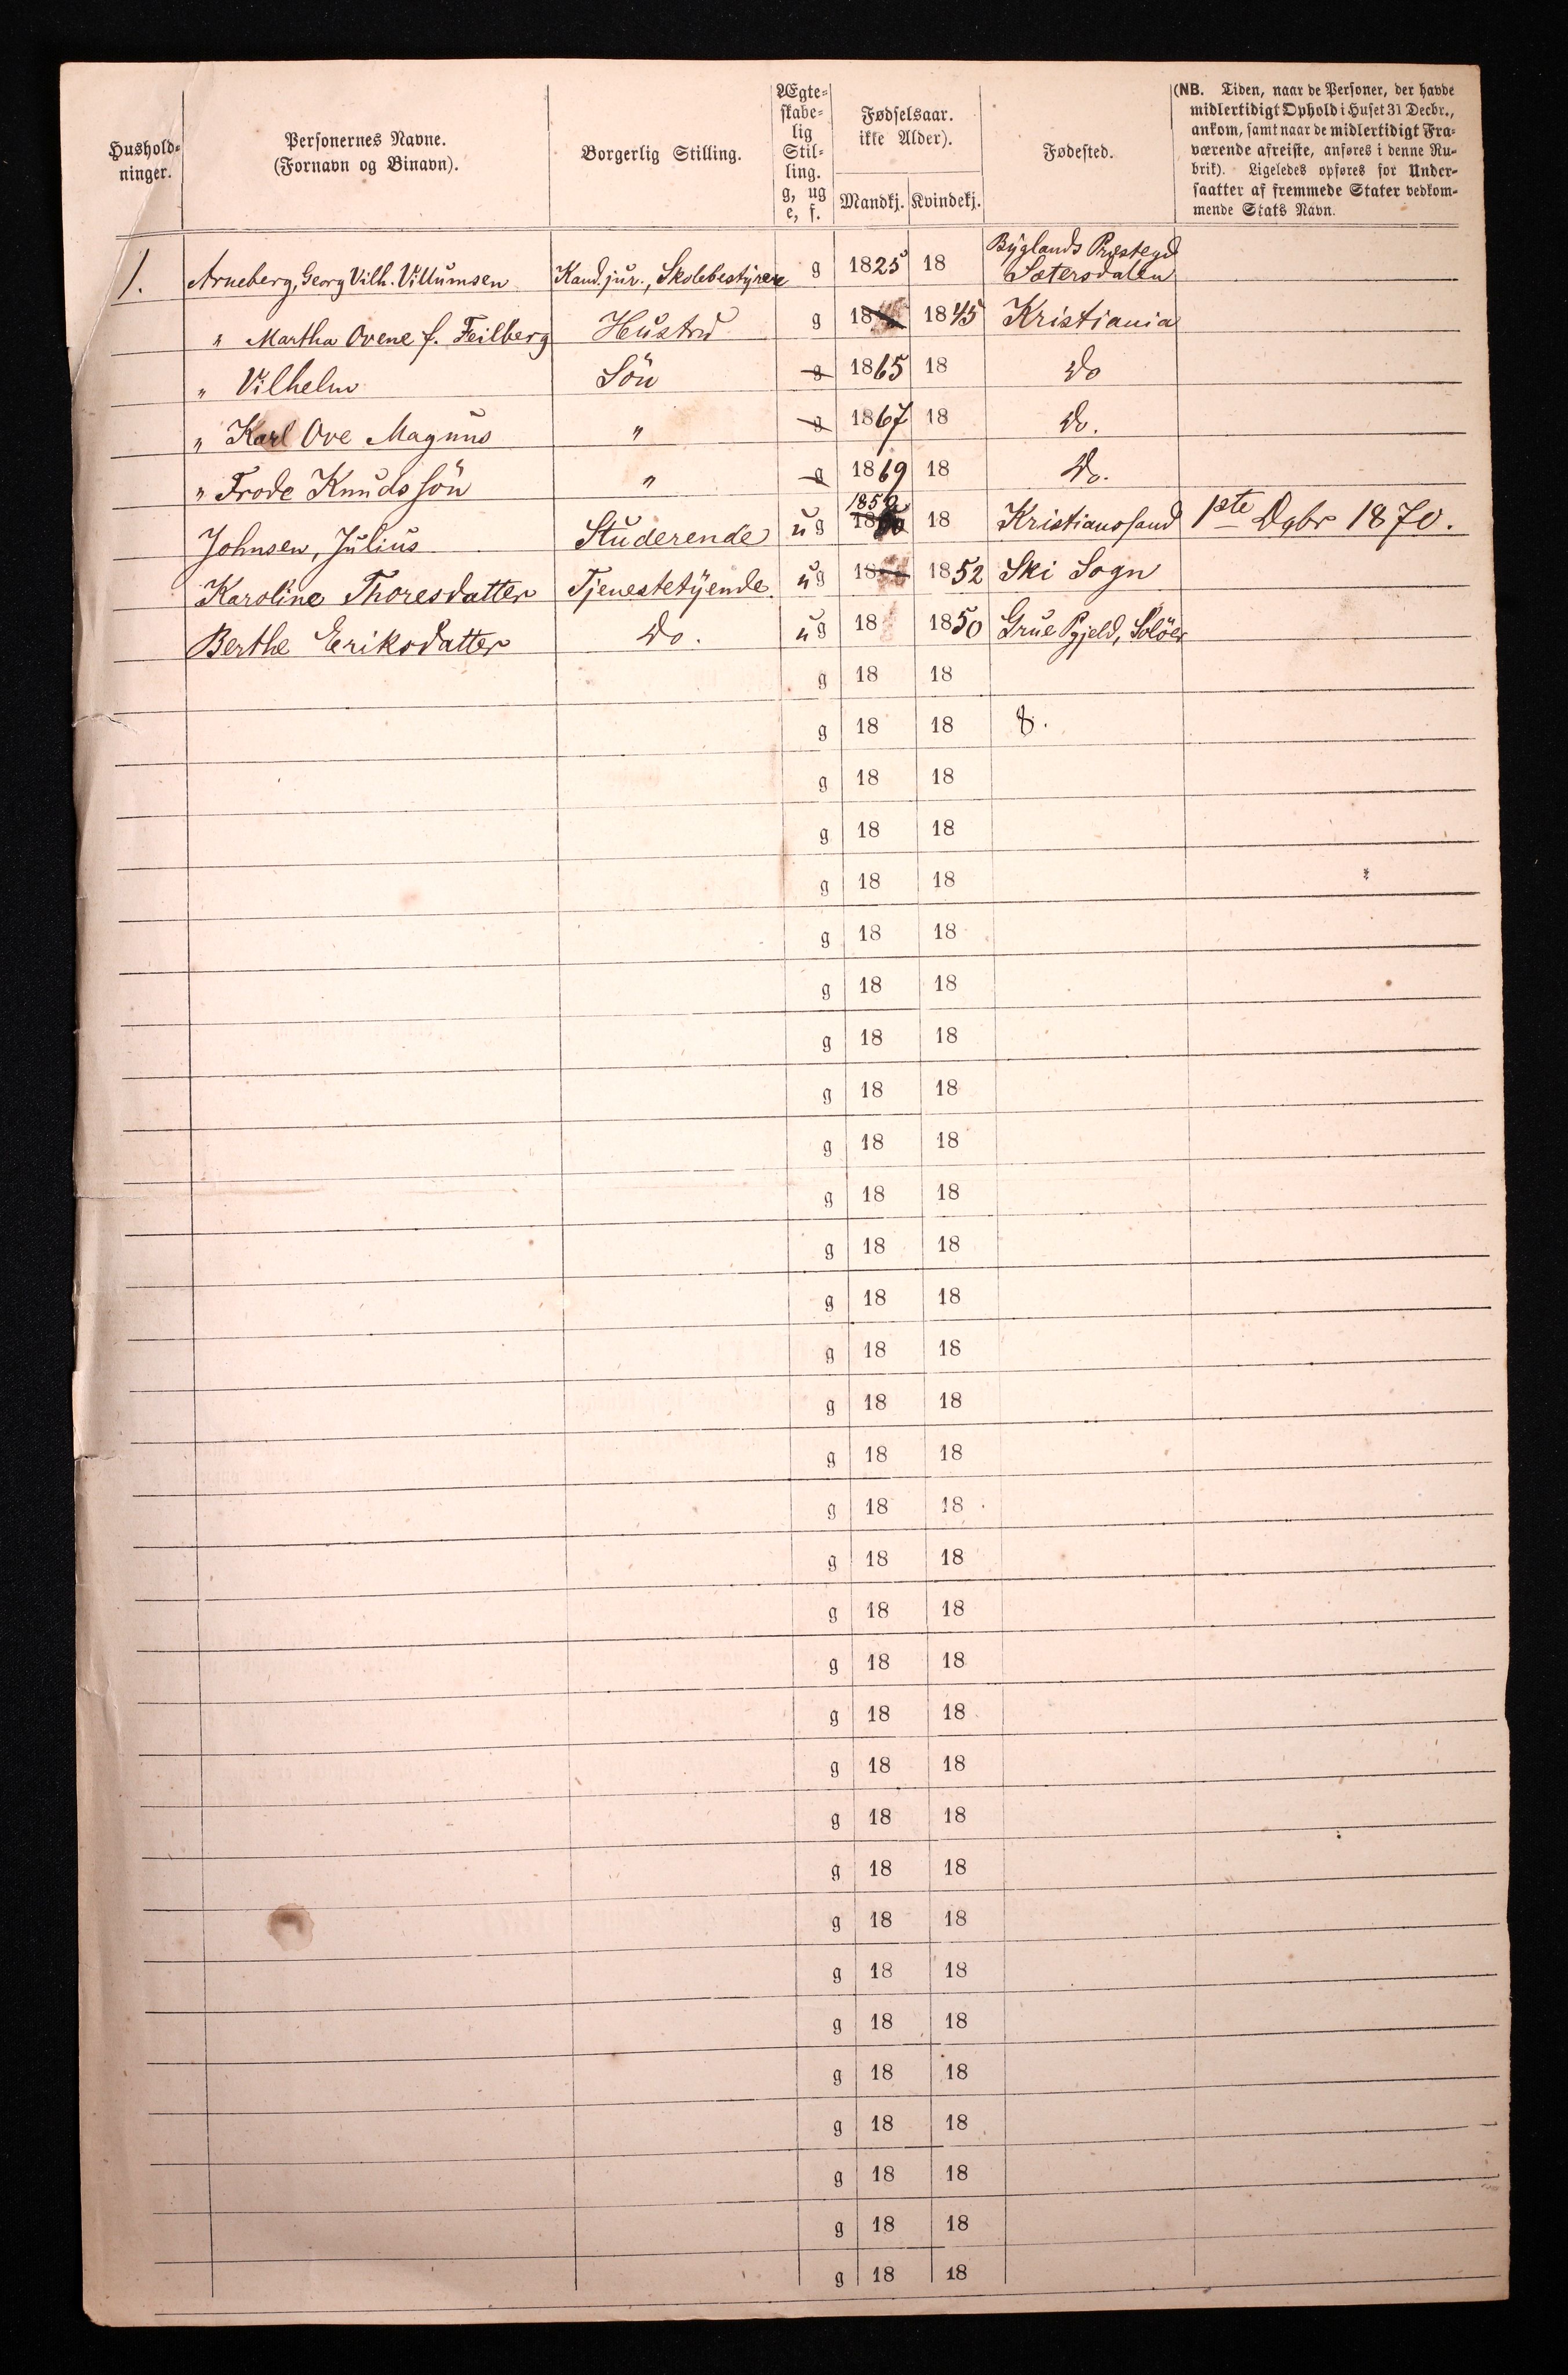 Hushold-
ninger.
Personernes Navne.
(Fornavn og Binavn).
Borgerlig Stilling.
Ægte-
skabe-
lig
Stil-
ling.
g, ug
e, f.
Fødselsaar.
ikke Alder).
Mandkj. Kvindekj.
Fødested.
(NB. Tiden, naar de Personer, der havde
midlertidigt Ophold i Huset 31 Decbr.,
ankom, samt naar de midlertidigt Fra-
værende afreiste, anføres i denne Ru-
brik). Ligeledes opføres for Under-
saatter af fremmede Stater vedkom-
mende Stats Navn.
1. Arneberg, Georg Vilh. Villumsen Kand. jur., Skolebestyrer g 1825 18 Byglands Præstegd Sætersdalen
" Martha Ovene f. Feilberg Hustru g 18 1845 Kristiania
" Vilhelm Sön g 1865 18 Do
" Karl Ove Magnus " g 1867 18 Do.
" Frode Knudssön " g 1869 18 Do.
Johnsen, Julius Studerende ug 1852 18 Kristianssand 1ste Dgbr 1870.
Karoline Thoresdatter Tjenestetyende ug 18 1852 Ski Sogn
Berthe Eriksdatter Do. ug 18 1850 Grue Pgjeld, Solöer
g 18 18
g 18 18 8.
g 18 18
g 18 18
g 18 18
g 18 18
g 18 18
g 18 18
g 18 18
g 18 18
g 18 18
g 18 18
g 18 18
g 18 18
g 18 18
g 18 18
g 18 18
g 18 18
g 18 18
g 18 18
g 18 18
g 18 18
g 18 18
g 18 18
g 18 18
g 18 18
g 18 18
g 18 18
g 18 18
g 18 18
g 18 18
g 18 18